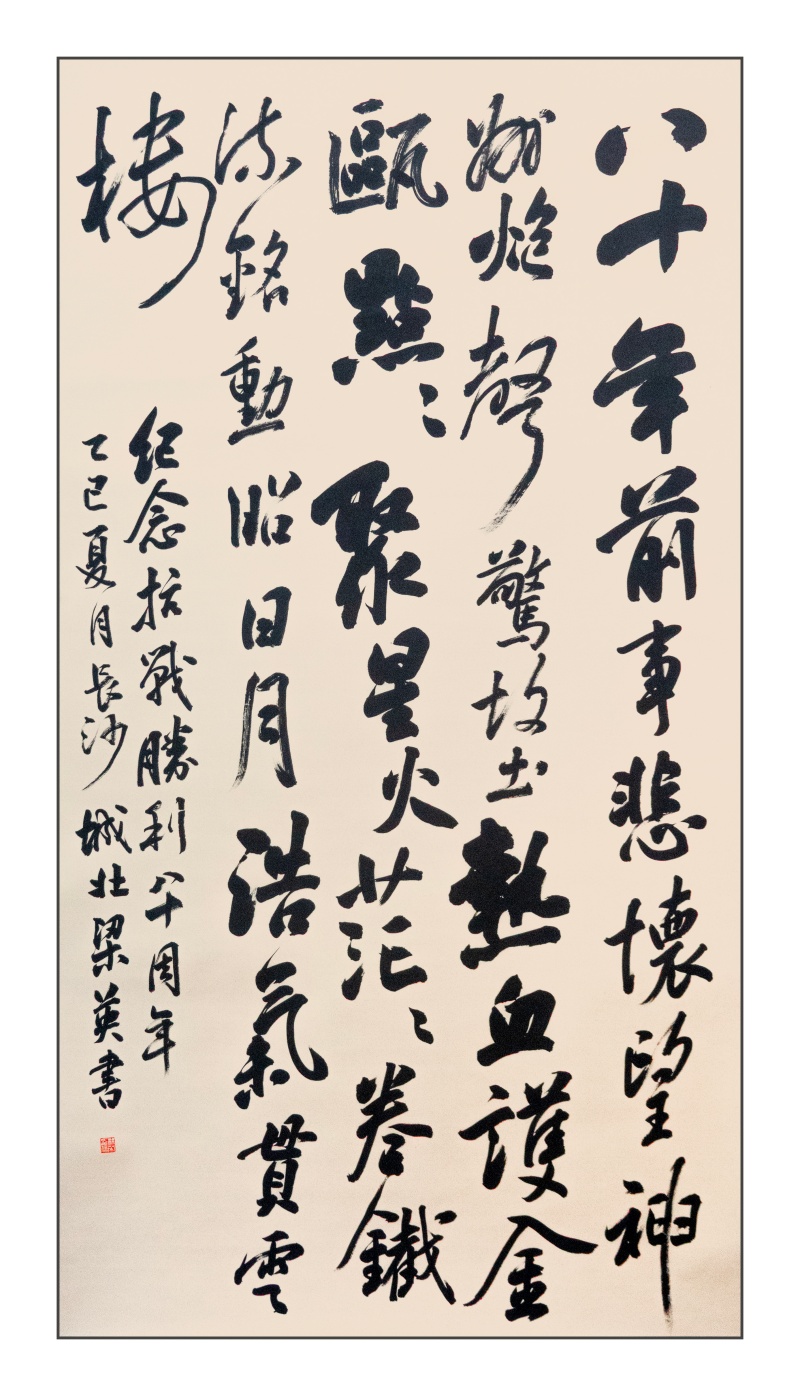 八十年前事悲懷望神
州炮聲驚故土熱血護金
甌點〻聚星火茫〻卷鐵
流銘勳昭日月浩氣貫雲
樓
紀念抗戰勝利八十周年
乙巳夏月長沙城北梁英書